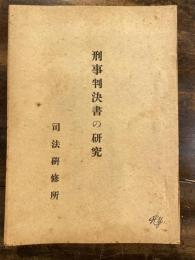 刑事判決書の研究
司法研修所